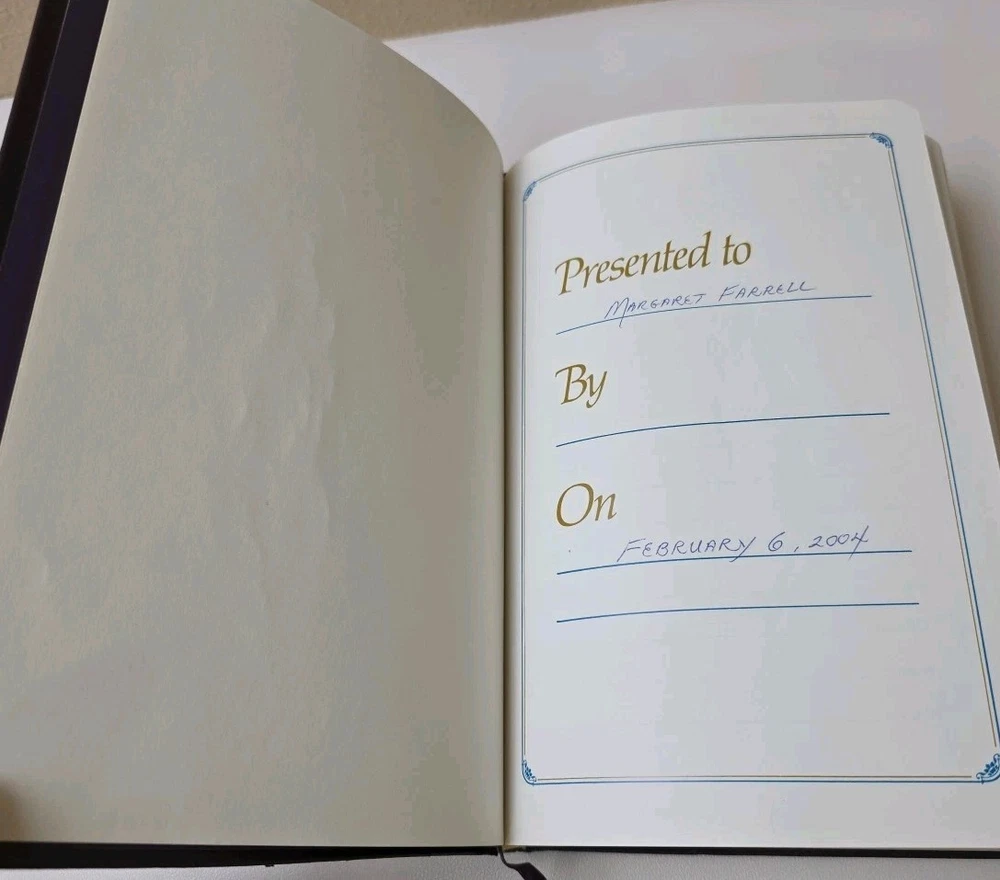 Presented to
MARGARET FARRELL
By
On
FEBRUARY 6, 2004